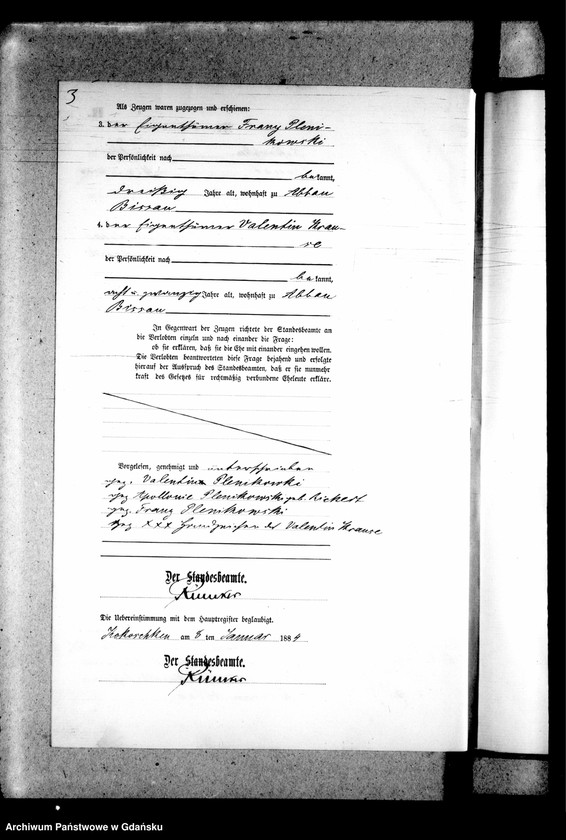 3
Als Zeugen waren zugezogen und erschienen:
3. der Eigenthümer Franz Pleni-
kowski
der Persönlichkeit nach
bekannt,
dreißig Jahre alt, wohnhaft zu Abbau
Bissau
4. der Eigenthümer Valentin Krau-
se
der Persönlichkeit nach
bekannt,
acht u. zwanzig Jahre alt, wohnhaft zu Abbau
Bissau
In Gegenwart der Zeugen richtete der Standesbeamte an
die Verlobten einzeln und nach einander die Frage:
ob sie erklären, daß sie die Ehe mit einander eingehen wollen.
Die Verlobten beantworteten diese Frage bejahend und erfolgte
hierauf der Ausspruch des Standesbeamten, daß er sie nunmehr
kraft des Gesetzes für rechtmäßig verbundene Eheleute erkläre.
Vorgelesen, genehmigt und unterschrieben
gez. Valentin Plenikowski
gez. Apollonie Plenikowski geb. Rickert
gez. Franz Plenikowski
gez. XXX Handzeichen des Valentin Krause
Der Standesbeamte.
Die Uebereinstimmung mit dem Hauptregister beglaubigt.
Kokoschken am 8 ten Januar 1884
Der Standesbeamte.
Archiwum Państwowe w Gdańsku